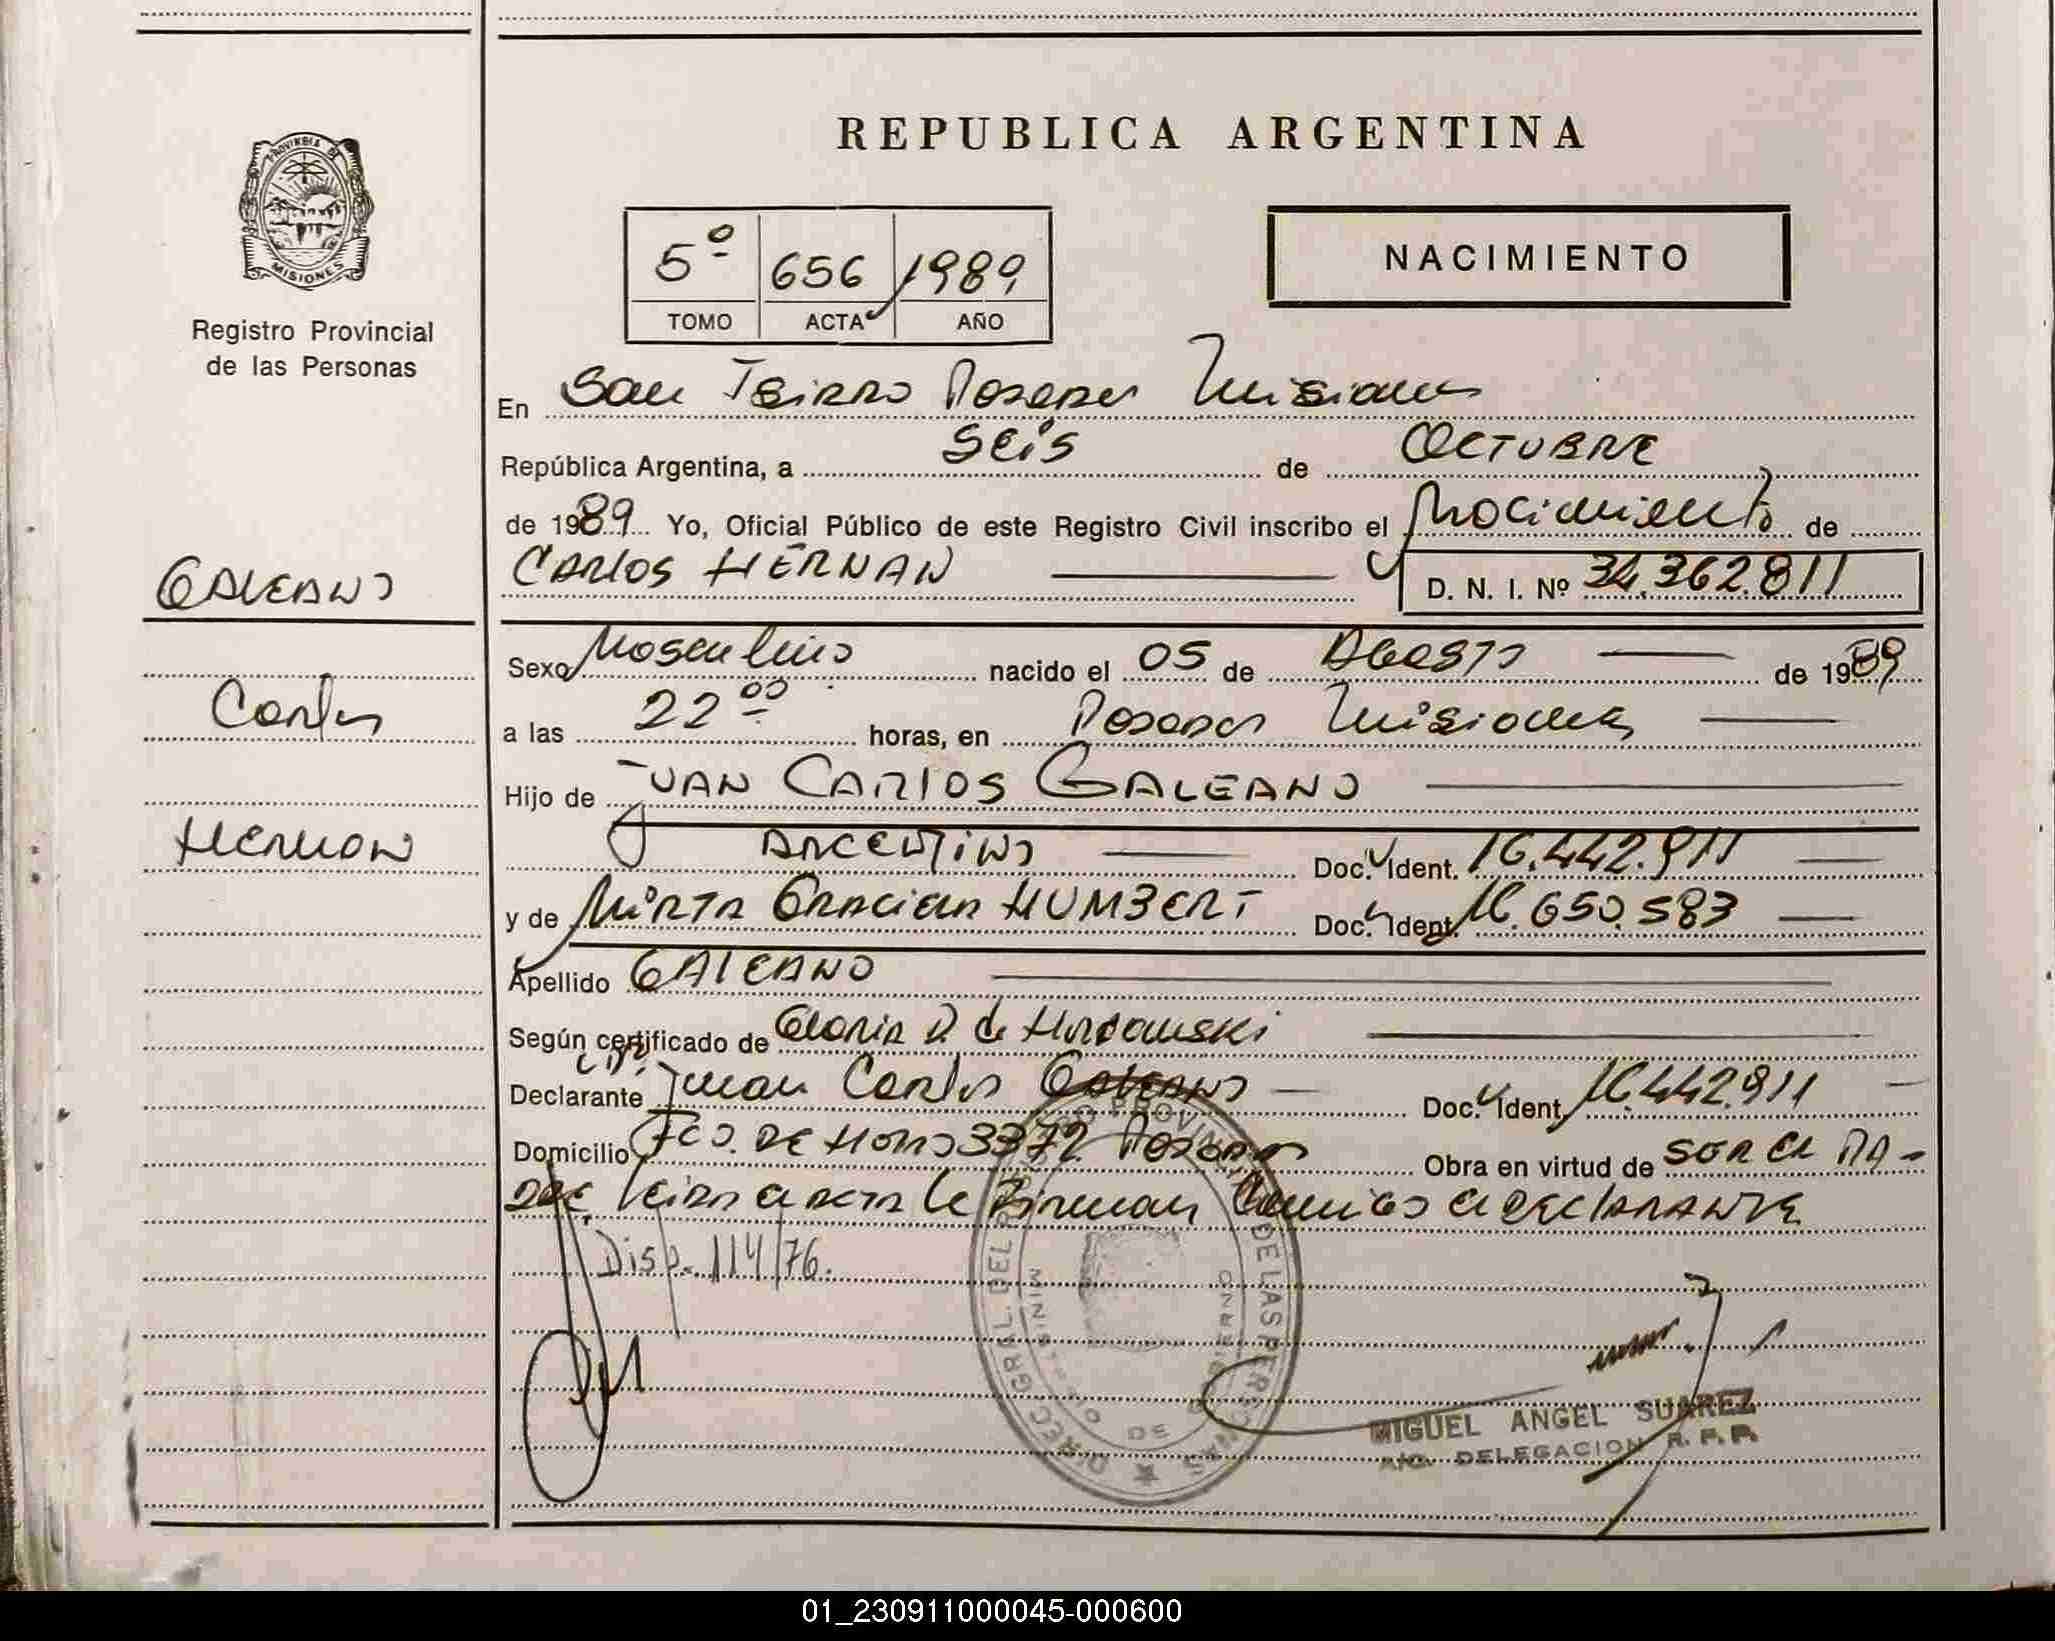 REPUBLICA ARGENTINA
PROVINCIA DE
MISIONES
Registro Provincial
de las Personas
5º 656 1989
TOMO ACTA AÑO
NACIMIENTO
En San Isidro Posadas Misiones
República Argentina, a Seis de OCTUBRE
de 1989 Yo, Oficial Público de este Registro Civil inscribo el Nacimiento de
CARLOS HERNAN D. N. I. Nº 34.362.811
GALEANO
Carlos
Hernan
Sexo Masculino nacido el 05 de AGOSTO de 1989
a las 22 00 horas, en Posadas Misiones
Hijo de JUAN CARLOS GALEANO
ARGENTINO Doc. Ident. 16.442.911
y de MIRTA GRACIELA HUMBERT Doc. Ident. 16.650.583
Apellido GALEANO
Según certificado de Gloria D. de
Declarante Juan Carlos GALEANO Doc. Ident. 16.442.911
Domicilio FCO. DE HARO 3372 Posadas Obra en virtud de SER EL PA-
DRE Leida el acta la Firman Conmigo el DECLARANTE
Disp. 114/76.
DIREC. GRAL. DEL REGISTRO PROVINCIAL DE LAS PERSONAS
MIGUEL ANGEL SUAREZ
A/C. DELEGACION R. P. P.
01_230911000045-000600